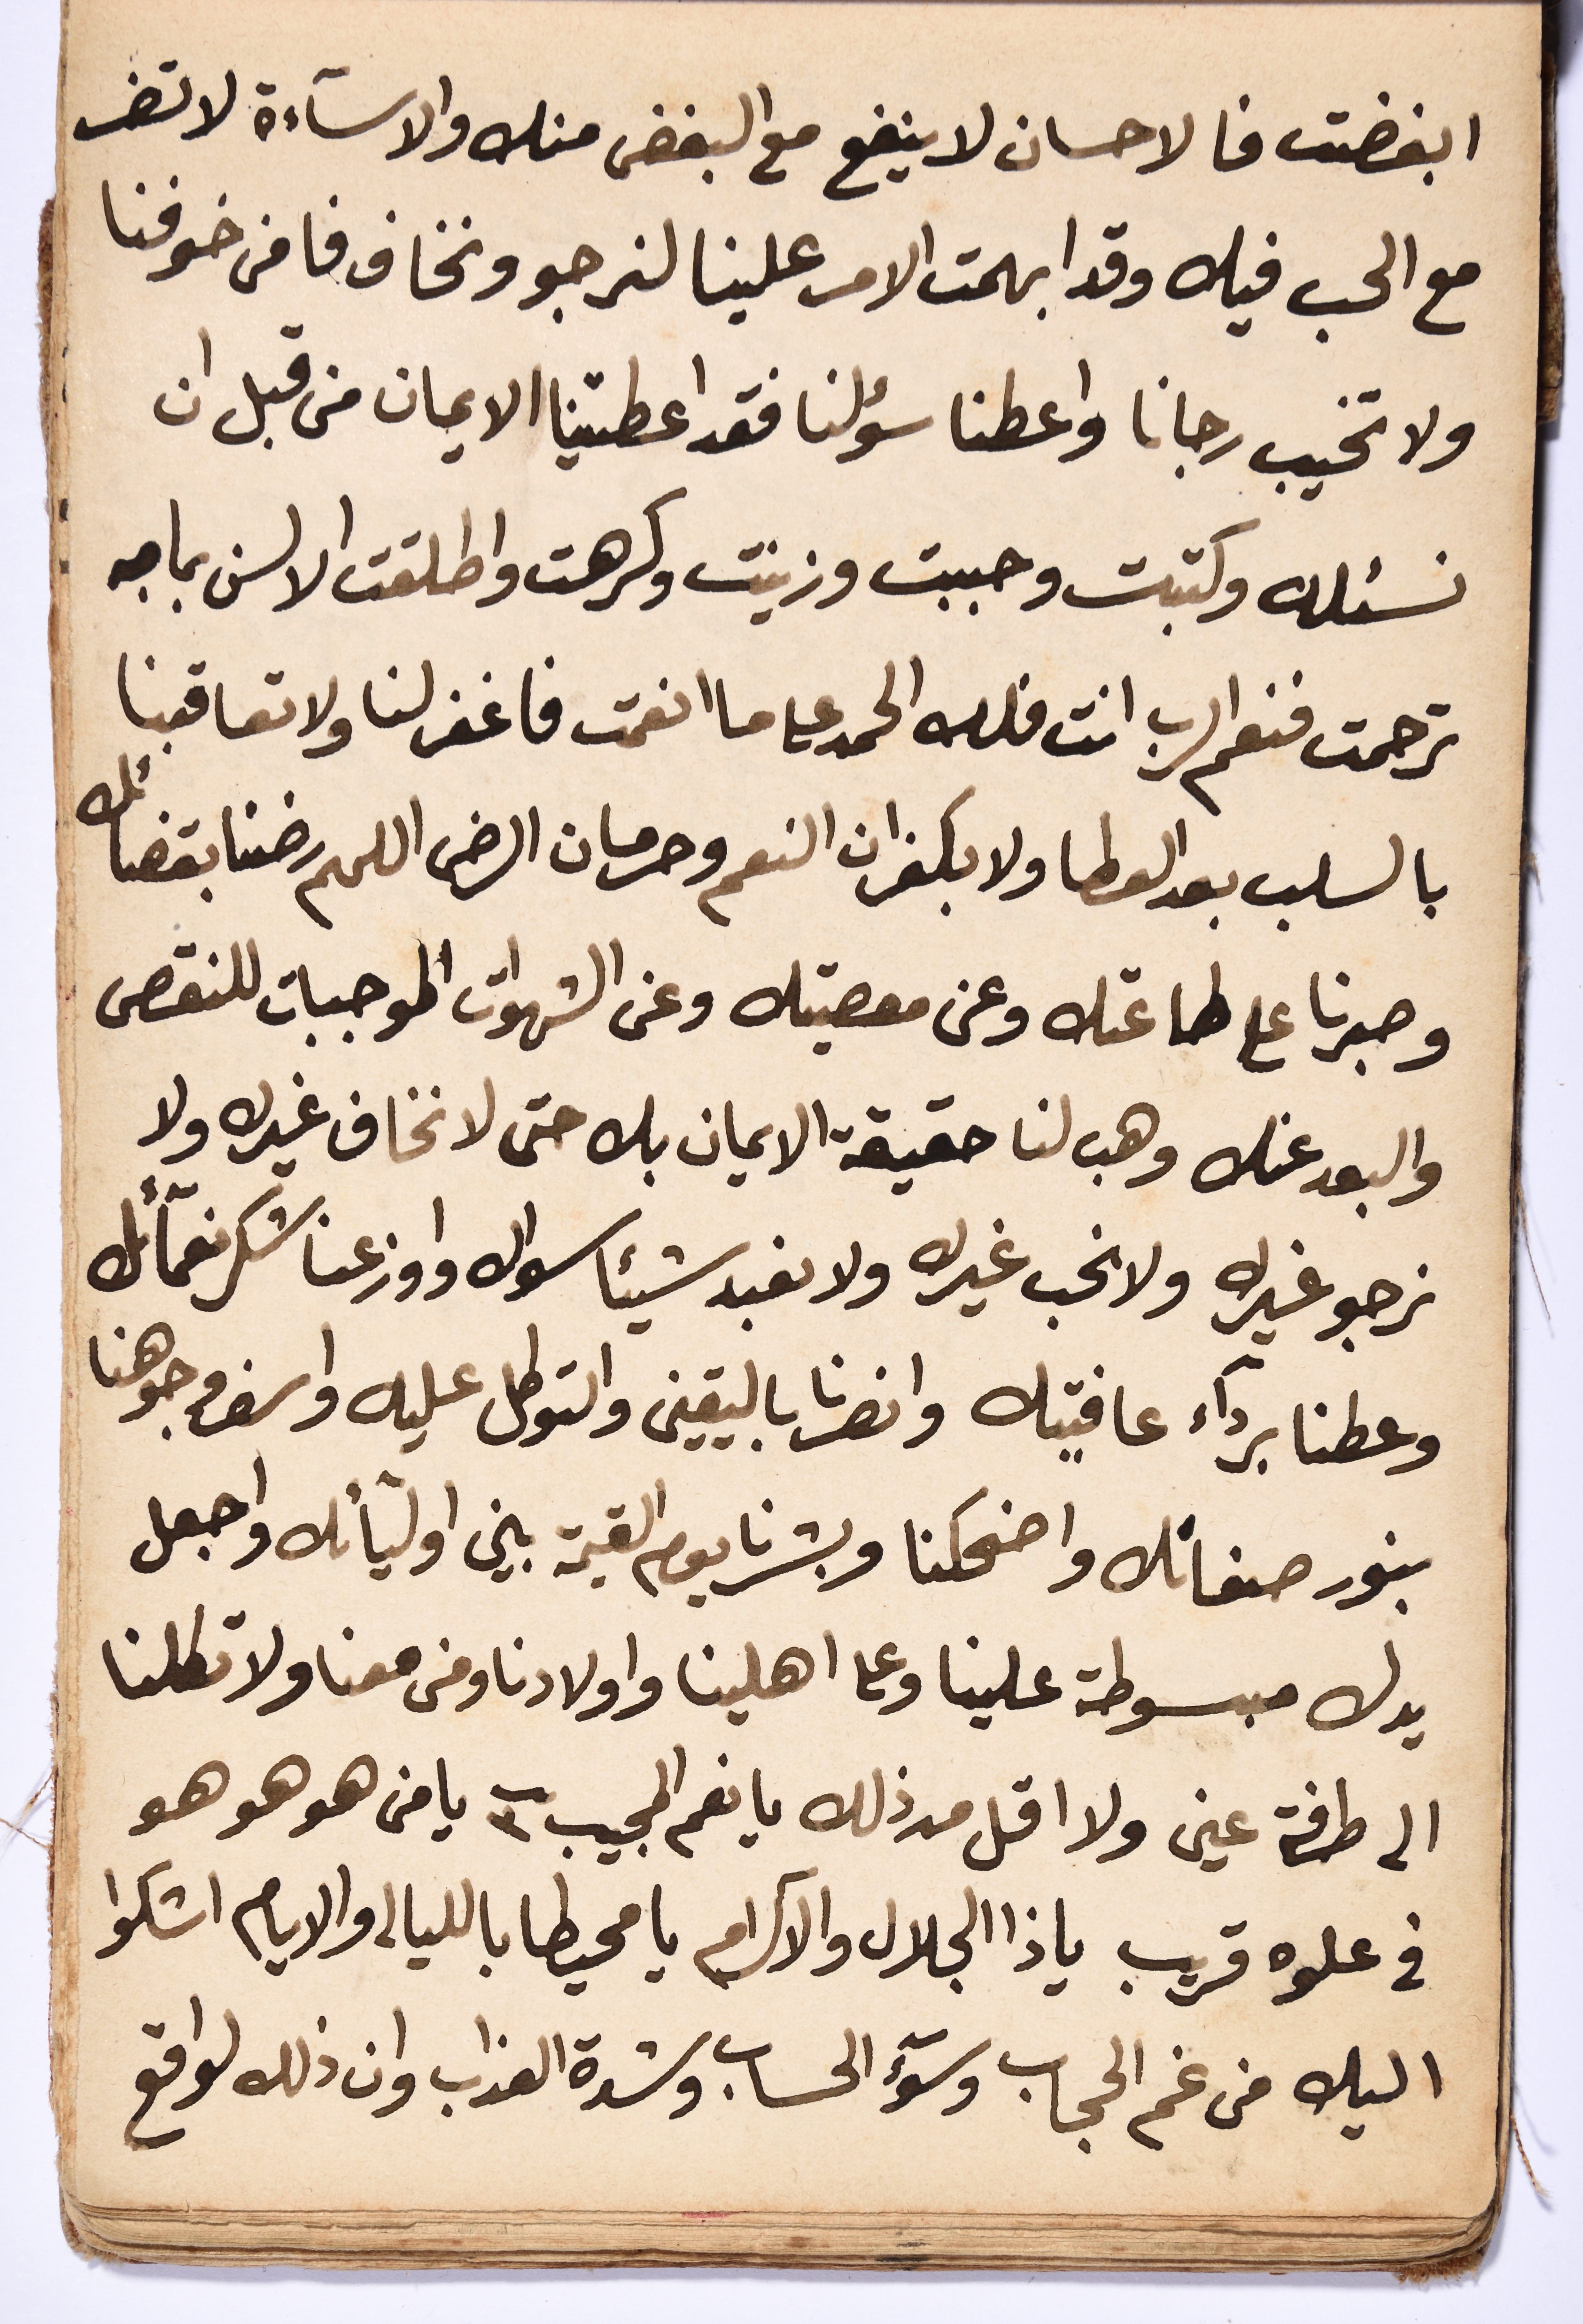 ابغضت فالاحسان لا ينفع مع البغض منك والاسآءة لا تضر
مع الحب فيك وقد ابهمت الامر علينا لنرجو ونخاف فامن خوفنا
ولا تخيب رجانا واعطنا سؤلنا فقد اعطيتنا الايمان من قبل ان
نسئلك وكتبت وحببت وزينت وكرهت واطلقت الالسن بما به
ترجمت فنعم الرب انت فلك الحمد على ما انعمت فاغفر لنا ولا تعاقبنا
بالسلب بعد العطا ولا بكفران النعم وحرمان الرضى اللهم رضنا بقضائك
وصبرنا على طاعتك وعن معصيتك وعن الشهوات الموجبات للنقص
والبعد عنك وهب لنا حقيقة الايمان بك حتى لا نخاف غيرك ولا
نرجو غيرك ولا نحب غيرك ولا نعبد شيئا سواك واوزعنا شكر نعمآئك
وعطنا بردآء عافيتك وانصرنا باليقين والتوكل عليك واسفر وجوهنا
بنور صفاتك واضحكنا وبشرنا يوم القيمة بين اوليآئك واجعل
يدك مبسوطة علينا وعلى اهلينا واولادنا ومن معنا ولا تكلنا
الى طرفة عين ولا اقل من ذلك يا نعم المجيب ٣ يا من هو هو هو
في علوه قريب يا ذا الجلال والاكرام يا محيطا بالليالى والايام اشكوا
اليك من غم الحجاب وسوٓء الحساب وشدة العذاب وان ذلك لواقع